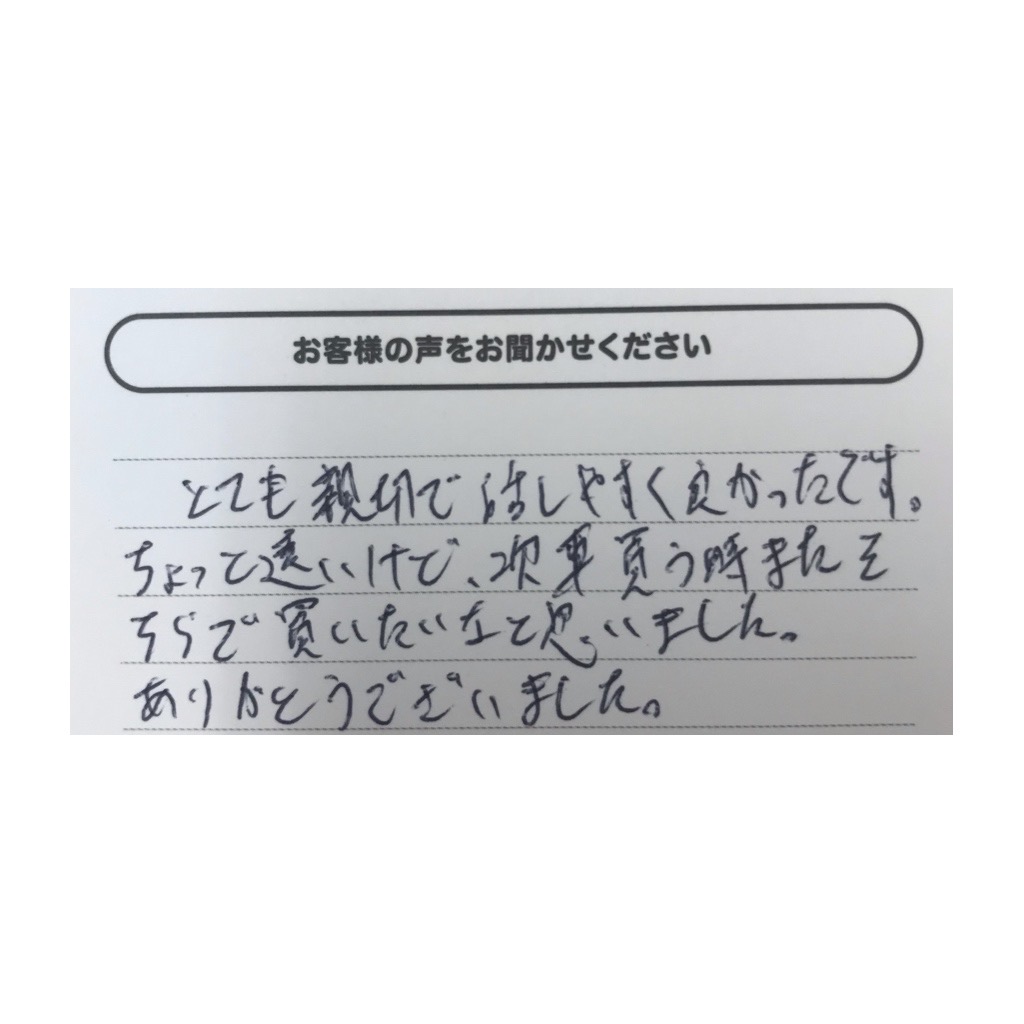 お客様の声をお聞かせください
とても親切で話しやすく良かったです。
ちょって遠いけで、次車買う時またそ
ちらで買いたいなと思いました。
ありがとうでざいました。